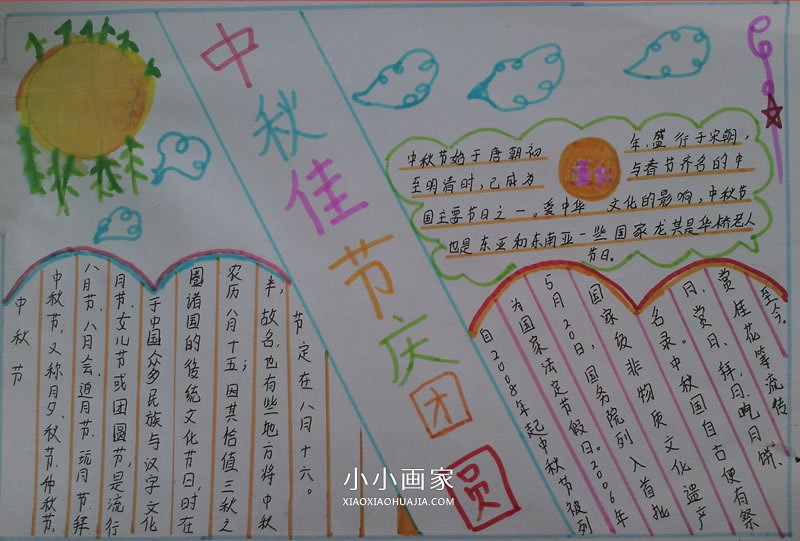 中秋佳节庆团圆
中秋节始于唐朝初 年,盛行于宋朝,
至明清时,已成为 与春节齐名的中
国主要节日之一。爱中华 文化的影响,中秋节
也是东亚和东南亚一些国家龙其是华桥老人
节日。
中秋节
中秋节,又称月夕、秋节、仲秋节、
八月节、八月会、追月节、玩月节、拜
月节、女儿节或团圆节,是流行
于中国众多民族与汉字文化
圈诸国的传统文化节日,时在
农历八月十五;因其恰值三秋之
半,故名,也有些地方将中秋
节定在八月十六。
自2008年起中秋节被列
为国家法定节假日。2006年
5月20日,国务院列入首批
国家非物质文化遗产
名录。中秋国自古便有祭
日、赏日、拜日、吃月饼、
赏桂花等流传
至今。
小小画家
XIAOXIAOHUAJIA.COM